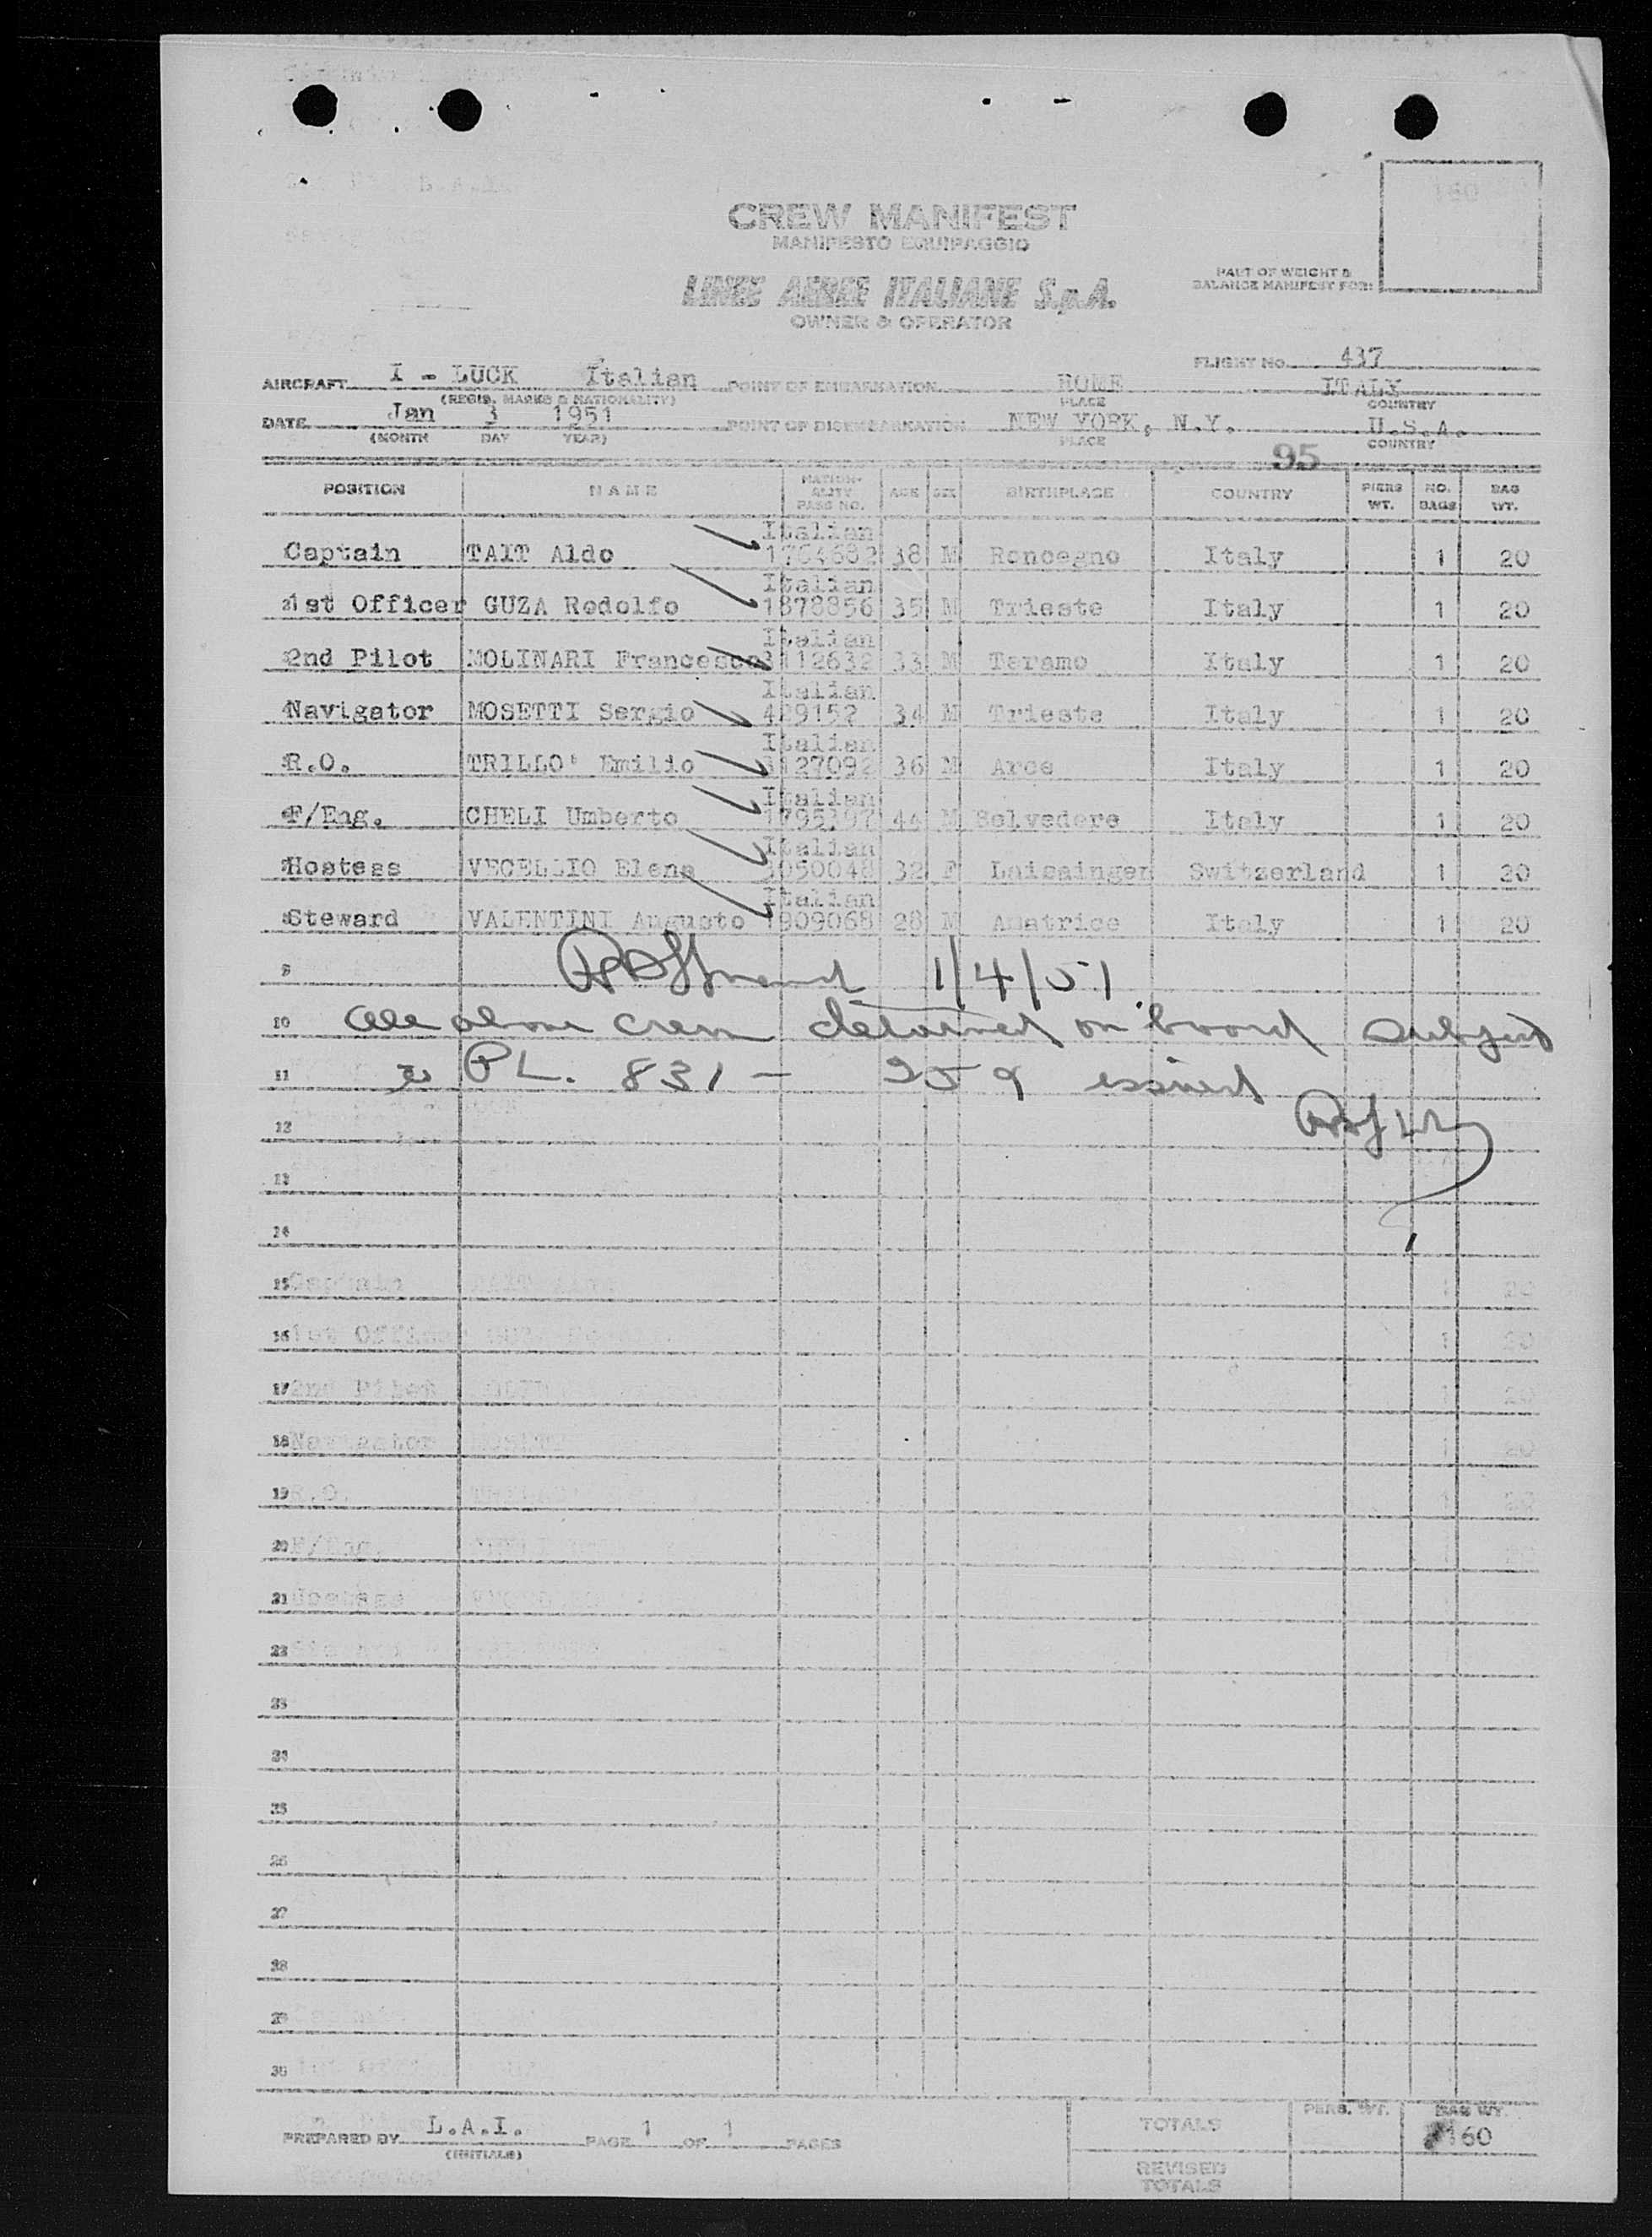 CREW MANIFEST
MANIFESTO EQUIPAGGIO
LINEE AEREE ITALIANE S.p.A.
OWNER & OPERATOR
PART OF WEIGHT &
BALANCE MANIFEST FOR:
FLIGHT NO. 437
AIRCRAFT I - LUCK Italian POINT OF EMBARKATION ROME ITALY
(REGIS. MARKS & NATIONALITY) PLACE COUNTRY
DATE Jan 3 1951 POINT OF DISEMBARKATION NEW YORK, N.Y. U.S.A.
(MONTH DAY YEAR) PLACE COUNTRY
95
POSITION NAME NATION-ALITY PASS NO. AGE SEX BIRTHPLACE COUNTRY PERS WT. NO. BAGS BAG WT.
Italian
Captain TAIT Aldo 38 M Roncegno Italy 1 20
Italian
1st Officer GUZA Rodolfo 1878856 35 M Trieste Italy 1 20
Italian
2nd Pilot MOLINARI Francesco 3112632 33 M Teramo Italy 1 20
Italian
4 Navigator MOSETTI Sergio 429152 34 M Trieste Italy 1 20
Italian
R.O. TRILLO' Emilio 3127092 36 M Arce Italy 1 20
Italian
F/Eng. CHELI Umberto 1795397 44 M Belvedere Italy 1 20
Italian
Hostess VECELLIO Elena 3050048 32 F Switzerland 1 20
Italian
8 Steward VALENTINI Augusto 1909068 28 M Amatrice Italy 1 20
9 1/4/51
10 All above crew detained on board subject
11 to P.L. 831 - 259 issued
12
13
14
15
16
17
18
19
20
21
22
23
24
25
26
27
28
29
30
PREPARED BY L.A.I. PAGE 1 OF 1 PAGES
(INITIALS)
TOTALS PERS. WT. BAG WT.
160
REVISED
TOTALS